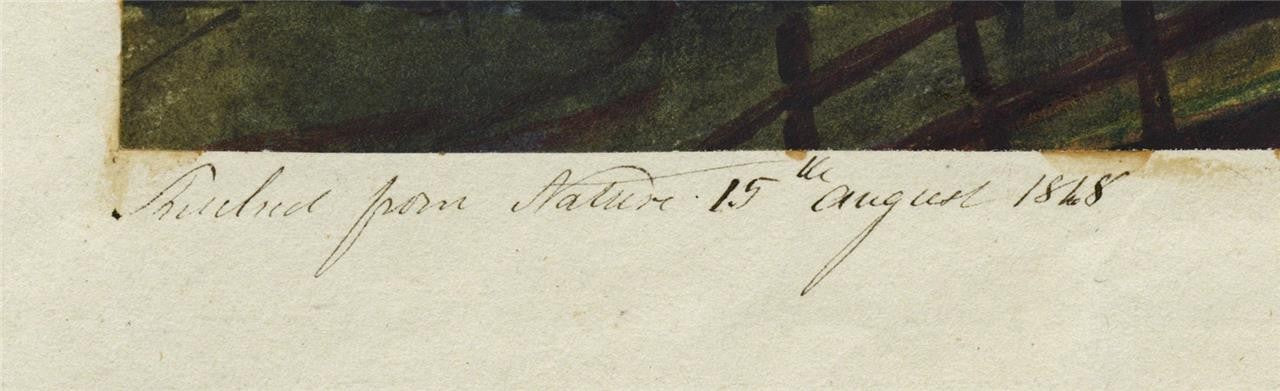 Finished from Nature. 15th august 1848